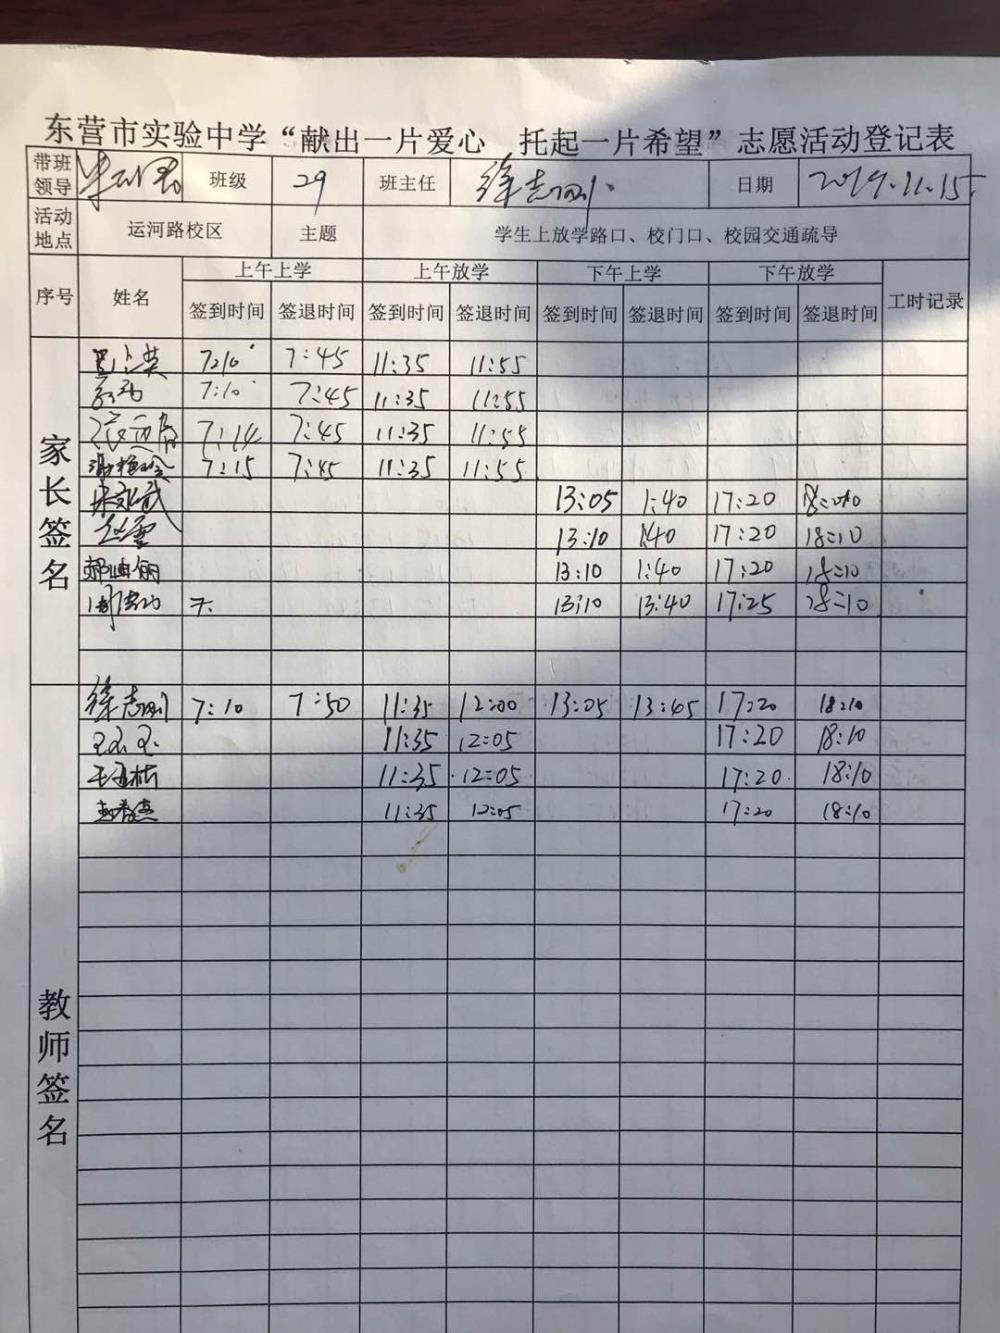 东营市实验中学“献出一片爱心 托起一片希望”志愿活动登记表
带班领导 班级 29 班主任 徐志刚 日期 2019.11.15
活动地点 运河路校区 主题 学生上放学路口、校门口、校园交通疏导
序号 姓名 上午上学 上午放学 下午上学 下午放学 工时记录
签到时间 签退时间 签到时间 签退时间 签到时间 签退时间 签到时间 签退时间
家长签名
7:10 7:45 11:35 11:55
7:10 7:45 11:35 11:55
7:14 7:45 11:35 11:55
7:15 7:45 11:35 11:55
13:05 1:40 17:20
赵雪 13:10 1:40 17:20 18:10
13:10 1:40 17:20 18:10
13:10 13:40 17:25 18:10
教师签名
徐志刚 7:10 7:50 11:35 12:00 13:05 13:45 17:20 18:10
11:35 12:05 17:20 18:10
11:35 12:05 17:20 18:10
11:35 12:05 17:20 18:10